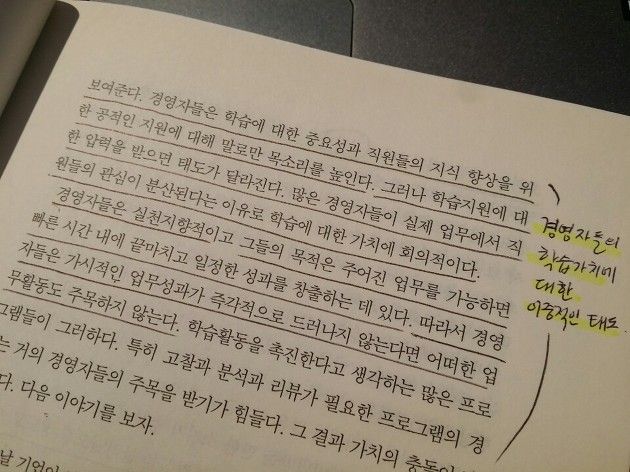 보여준다. 경영자들은 학습에 대한 중요성과 직원들의 지식 향상을 위
한 공적인 지원에 대해 말로만 목소리를 높인다. 그러나 학습지원에 대
한 압력을 받으면 태도가 달라진다. 많은 경영자들이 실제 업무에서 직
원들의 관심이 분산된다는 이유로 학습에 대한 가치에 회의적이다.
경영자들은 실천지향적이고 그들의 목적은 주어진 업무를 가능하면
빠른 시간 내에 끝마치고 일정한 성과를 창출하는 데 있다. 따라서 경영
자들은 가시적인 업무성과가 즉각적으로 드러나지 않는다면 어떠한 업
무활동도 주목하지 않는다. 학습활동을 촉진한다고 생각하는 많은 프로
그램들이 그러하다. 특히 고찰과 분석과 리뷰가 필요한 프로그램의 경
는 거의 경영자들의 주목을 받기가 힘들다. 그 결과 가치의 충돌이
다. 다음 이야기를 보자.
날 기업이
경영자들의
학습가치에
대한
이중적인 태도.